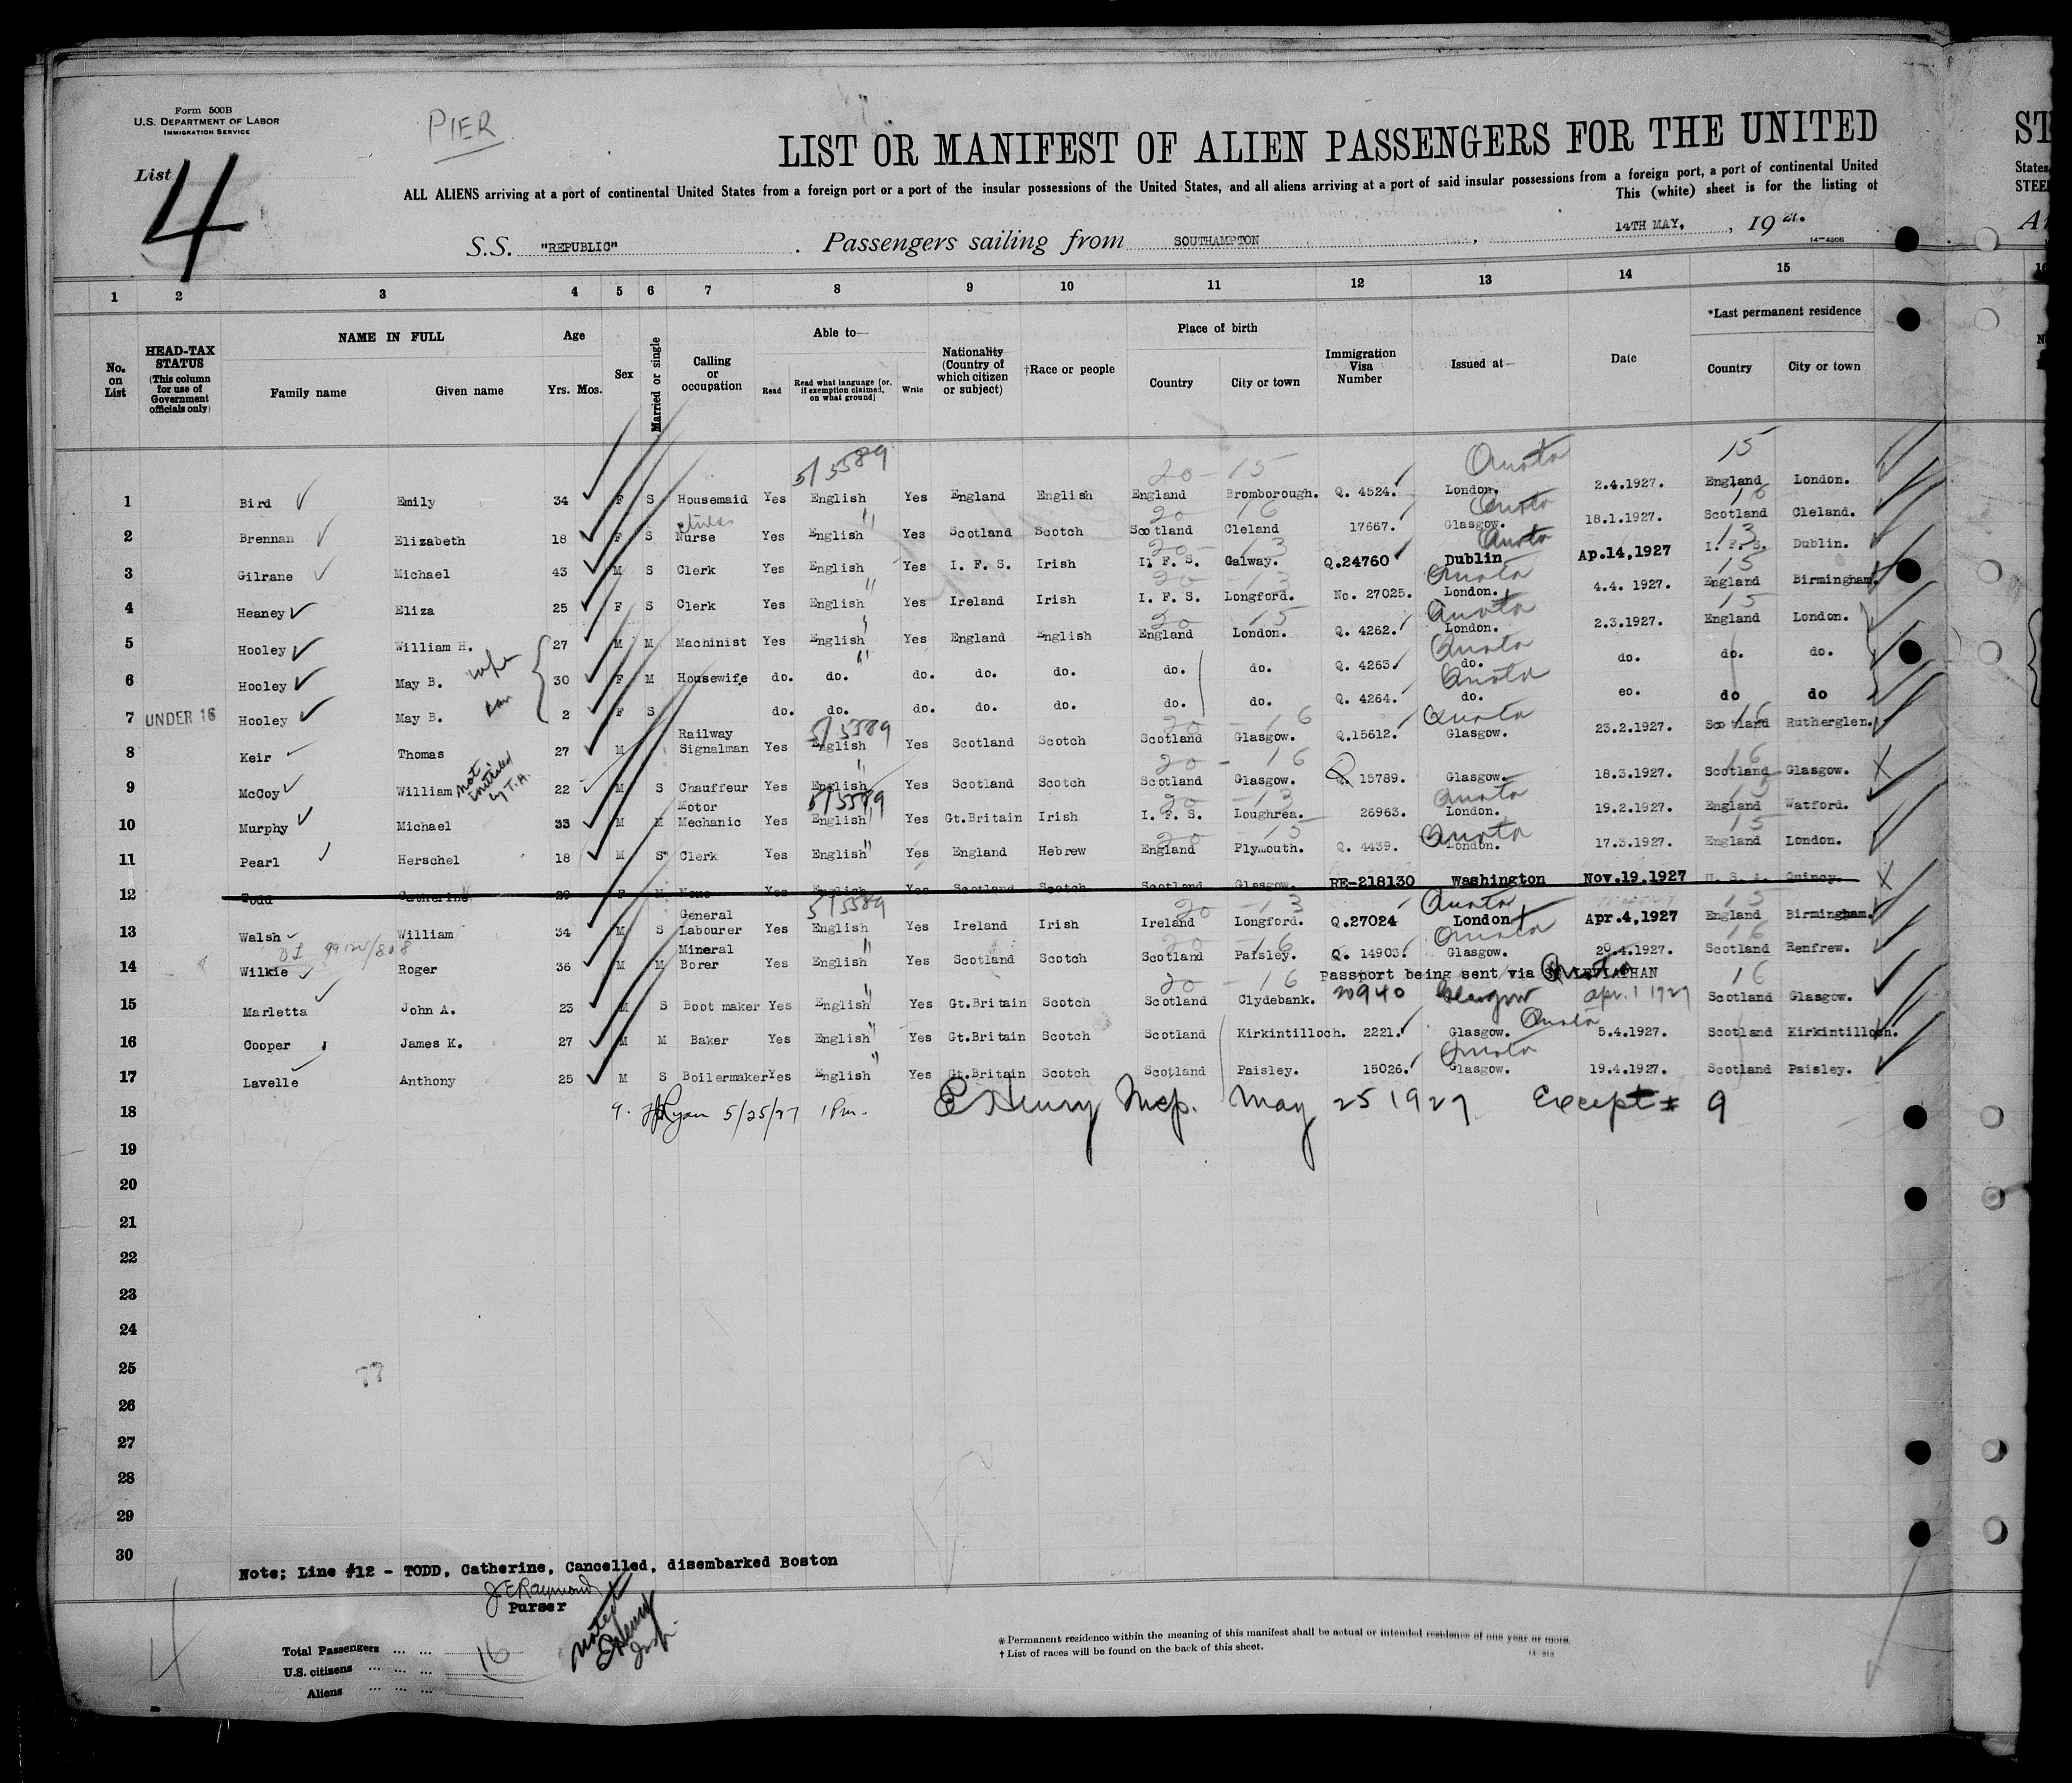 Form 500B
U.S. DEPARTMENT OF LABOR
IMMIGRATION SERVICE
PIER
List 4
LIST OR MANIFEST OF ALIEN PASSENGERS FOR THE UNITED
ALL ALIENS arriving at a port of continental United States from a foreign port or a port of the insular possessions of the United States, and all aliens arriving at a port of said insular possessions from a foreign port, a port of continental United
This (white) sheet is for the listing of
S.S. "REPUBLIC" . Passengers sailing from SOUTHAMPTON , 14TH MAY, , 19
14-420B
1 2 3 4 5 6 7 8 9 10 11 12 13 14 15
No. on List
HEAD-TAX STATUS (This column for use of Government officials only)
NAME IN FULL Family name Given name
Age Yrs. Mos.
Sex
Married or single
Calling or occupation
Able to— Read Read what language [or, if exemption claimed, on what ground] Write
Nationality (Country of which citizen or subject)
†Race or people
Place of birth Country City or town
Immigration Visa Number
Issued at—
Date
*Last permanent residence Country City or town
5/5589 20-15 Quota 15
1 Bird Emily 34 F S Housemaid Yes English Yes England English England Bromborough. Q. 4524. London. 2.4.1927. England London.
20 16 Quota 16
2 Brennan Elizabeth 18 F S Nurse Yes English " Yes Scotland Scotch Scotland Cleland 17667. Glasgow. 18.1.1927. Scotland Cleland.
20-13 Quota 13
3 Gilrane Michael 43 M S Clerk Yes English Yes I. F. S. Irish I. F. S. Galway. Q.24760 Dublin Ap.14,1927 I. F. S. Dublin.
20-13 Quota 15
4 Heaney Eliza 25 F S Clerk Yes English " Yes Ireland Irish I. F. S. Longford. No. 27025. London. 4.4. 1927. England Birmingham.
20-15 Quota 15
5 Hooley William H. 27 M M Machinist Yes English " Yes England English England London. Q. 4262. London. 2.3.1927. England London.
Quota
6 Hooley May B. wife 30 F M Housewife do. do. " do. do. do. do. do. Q. 4263. do. do. do. do.
Quota
7 UNDER 16 Hooley May B. 2 F S do. do. do. do. do. do. do. Q. 4264. do. eo. do do
5/5589 20-16 Quota 16
8 Keir Thomas 27 M Railway Signalman Yes English Yes Scotland Scotch Scotland Glasgow. Q.15612. Glasgow. 23.2.1927. Scotland Rutherglen.
20-16 16
9 McCoy William not initialed by T.A. 22 M S Chauffeur Yes English " Yes Scotland Scotch Scotland Glasgow. Q. 15789. Glasgow. 18.3.1927. Scotland Glasgow. X
5/5589 20-13 Quota 15
10 Murphy Michael 33 M M Motor Mechanic Yes English Yes Gt.Britain Irish I. F. S. Loughrea. 26963. London. 19.2.1927. England Watford.
20-15 Quota 15
11 Pearl Herschel 18 M S Clerk Yes English " Yes England Hebrew England Plymouth. Q. 4439. London. 17.3.1927. England London.
12 Todd Catherine 29 F M None Yes English Yes Scotland Scotch Scotland Glasgow. RE-218130 Washington Nov.19,1927 U. S. A. Quincy. X
5/5589 20-13 Quota 15
13 Walsh William 34 M S General Labourer Yes English Yes Ireland Irish Ireland Longford. Q.27024 London Apr.4,1927 England Birmingham.
20-16 Quota 16
14 Wilkie Roger 36 M M Mineral Borer Yes English " Yes Scotland Scotch Scotland Paisley. Q. 14903. Glasgow. 20.4.1927. Scotland Renfrew.
Passport being sent via SS LEVIATHAN Quota
20-16 16
15 Marletta John A. 23 M S Boot maker Yes English " Yes Gt.Britain Scotch Scotland Clydebank. 20940 Glasgow Apr. 1 1927 Scotland Glasgow.
Quota
16 Cooper James K. 27 M M Baker Yes English " Yes Gt.Britain Scotch Scotland Kirkintilloch. 2221. Glasgow. 5.4.1927. Scotland Kirkintilloch.
Quota
17 Lavelle Anthony 25 M S Boilermaker Yes English " Yes Gt.Britain Scotch Scotland Paisley. 15026. Glasgow. 19.4.1927. Scotland Paisley.
18 9. Ryan 5/25/27 1 Pm. E Henry Insp. May 25 1927 Except # 9
19
20
21
22
23
24
25
26
27
28
29
30
Note; Line #12 - TODD, Catherine, Cancelled, disembarked Boston
J E Raymond
Purser
noted E Henry Insp.
Total Passengers ... ... 16
U.S. citizens ... ... ...
Aliens ... ... ...
* Permanent residence within the meaning of this manifest shall be actual or intended residence of one year or more.
† List of races will be found on the back of this sheet.
4
ST
States
STEE